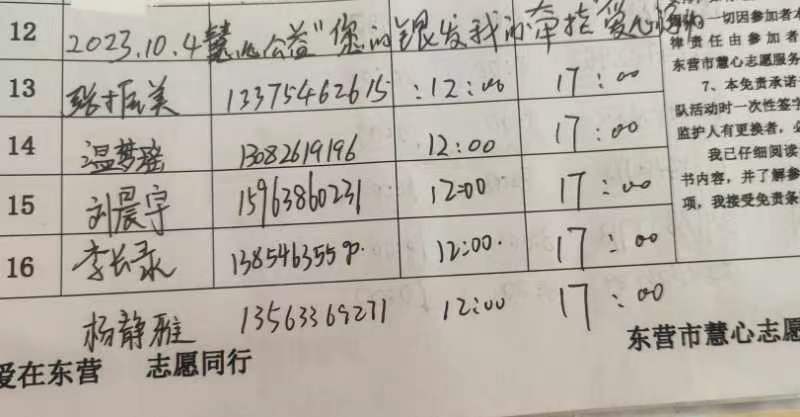 12 2023.10.4慧心公益"您的银发我的牵挂爱心
13 张振美 13375462615 :12:00 17:00
14 温梦瑶 13082619196 12:00 17:00
15 刘晨宇 15963860231 12:00 17:00
16 李长录 138546355 12:00. 17:00
杨静雅 13563369271 12:00 17:00
爱在东营 志愿同行
东营市慧心志愿
一切因参加者本
律责任由参加者
东营市慧心志愿服务
7、本免责承诺
队活动时一次性签字
监护人有更换者，必
我已仔细阅读
书内容，并了解参
项，我接受免责条